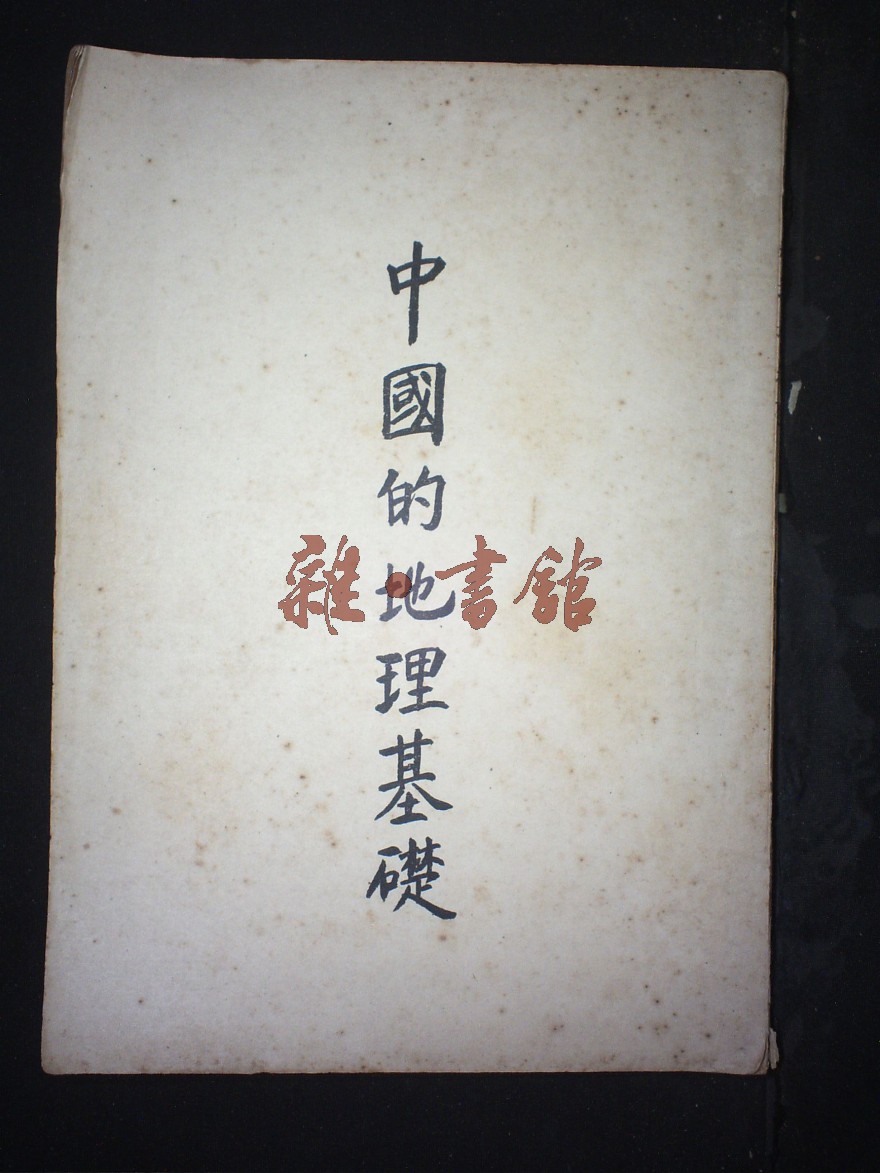 中國的地理基礎
雜·書館